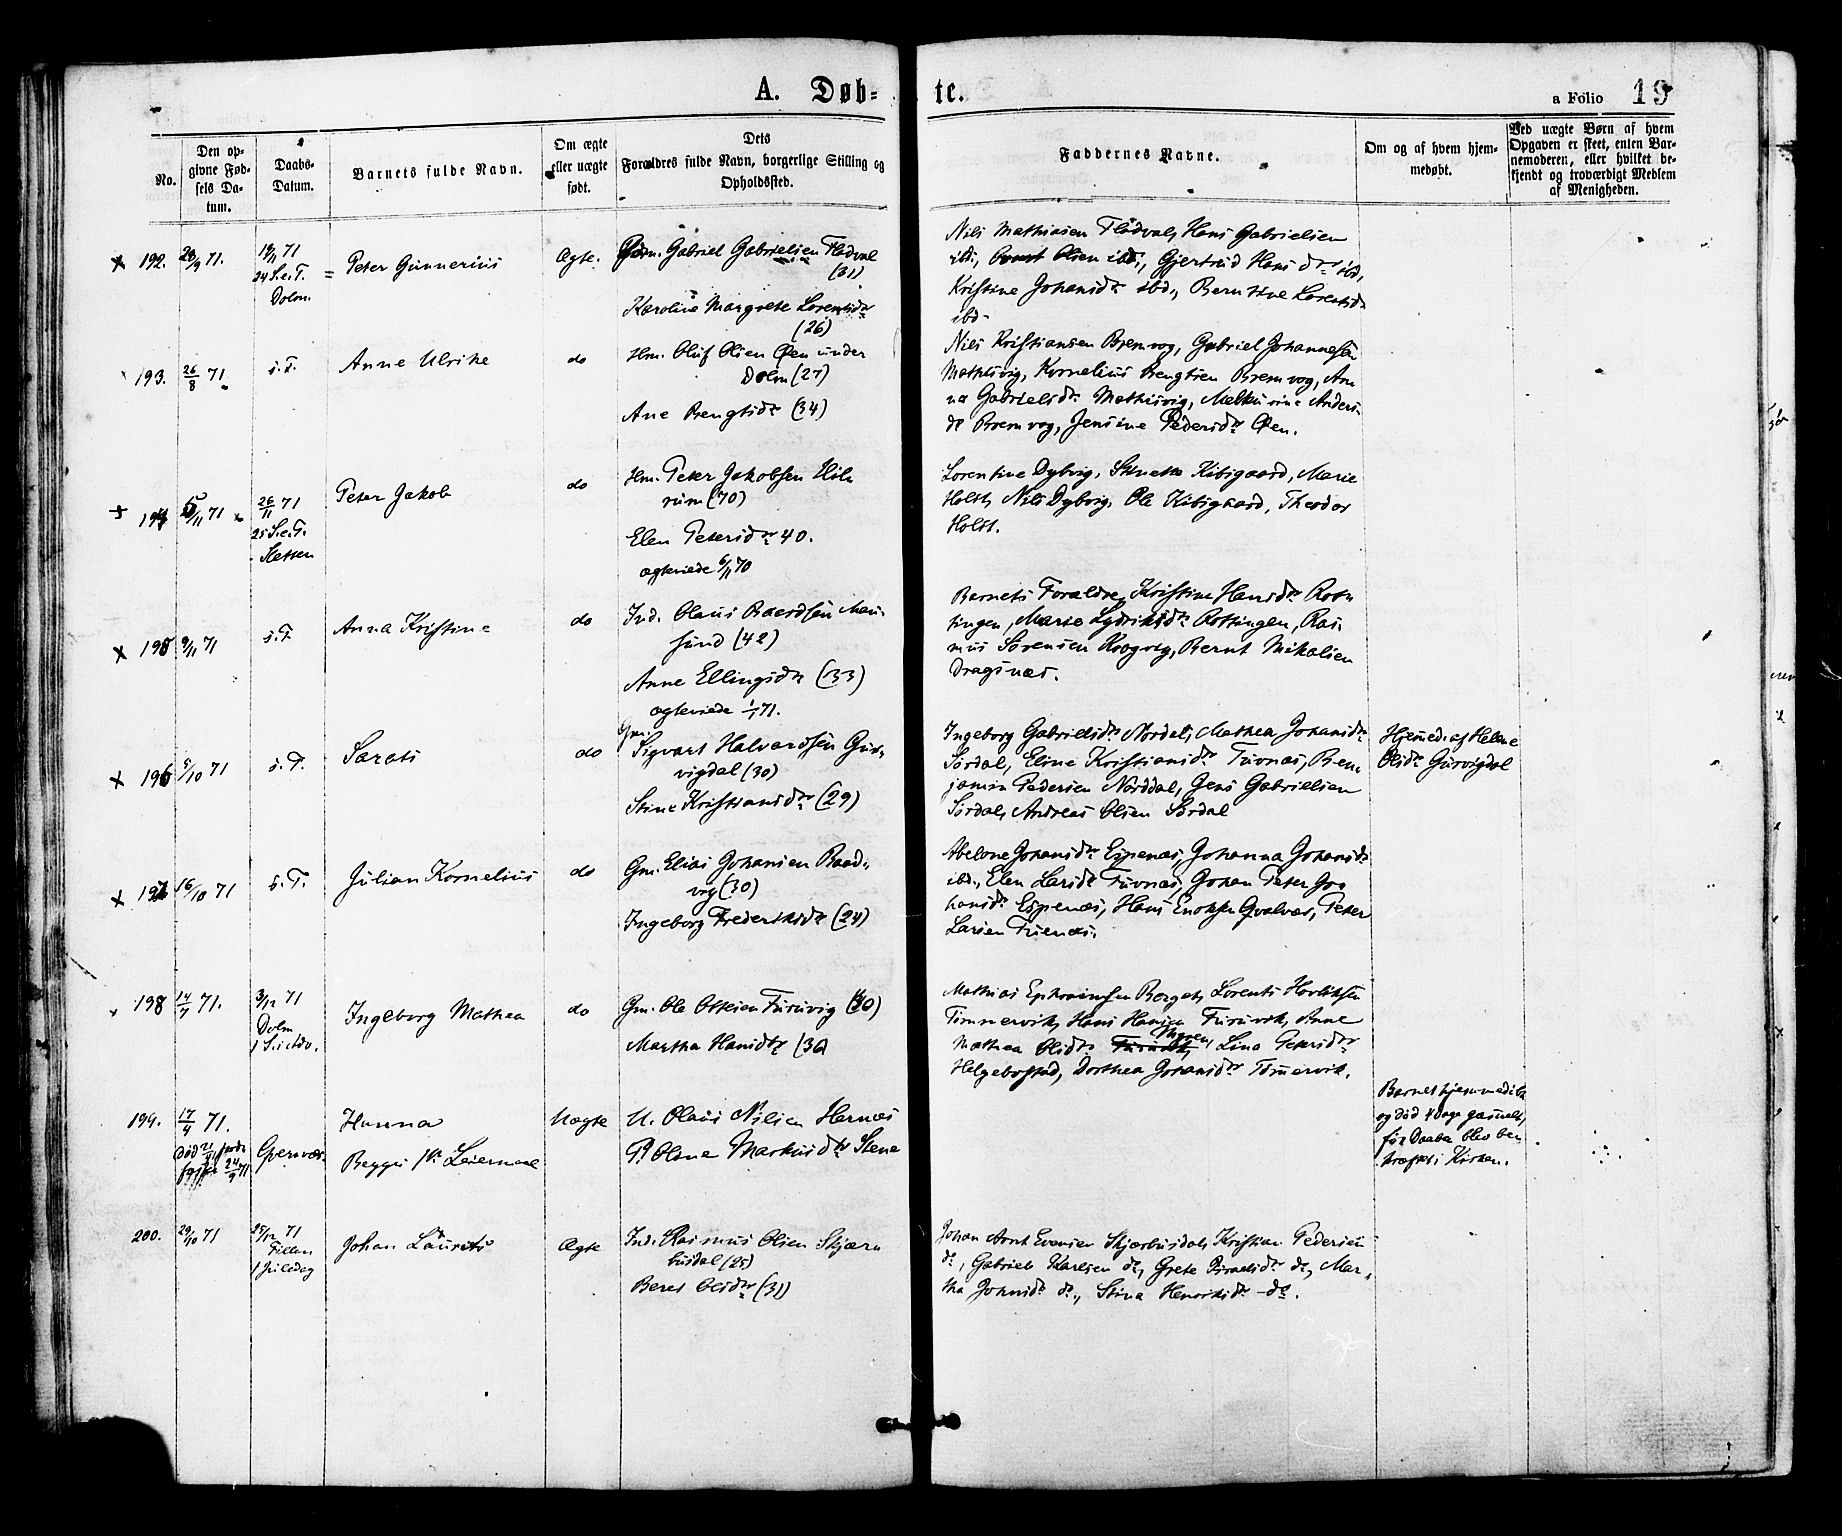 A. Døb-
te.
a Folio 19
No.
Den op-
givne Fød-
sels Da-
tum.
Daabs-
Datum.
Barnets fulde Navn.
Om ægte
eller uægte
født.
Dets
Forældres fulde Navn, borgerlige Stilling og
Opholdssted.
Faddernes Navne.
Om og af hvem hjem-
medøbt.
Ved uægte Børn af hvem
Opgaven er skeet, enten Bar-
nemoderen, eller hvilket be-
kjendt og troværdigt Medlem
af Menigheden.
192.
71.
19/11 71
24 S.e.T.
Dolm.
Peter Gunnerius
Ægte.
Gabriel Gabrielsen Flødval
(31)
Karoline Margrete Lorentsdr
(26)
Nils Mathiasen Flødval, Hans Gabrielsen
ibd., Olsen ibd., Gjertrud Hansdr ibd,
Kristine Johansdr ibd., Berntine Lorentsdr
ibd.
193.
26/8 71
s.T.
Anne Ulrike
do
Hm. Oluf Olsen Øen under
Dolm (27)
Ane Bengtsdr (34)
Nils Kristiansen Bremvog, Gabriel Johannesen
Mathisvig, Kornelius Bengtsen Bremvog, An
na Gabrielsdr Mathisvig, Anders
dr Bremvog, Jensine Pedersdr Øen.
194
5/11 71
26/11 71
25 S.e.T.
Sletten
Peter Jakob
do
Hm. Peter Jakobsen
(70)
Elen Petersdr 40.
ægteviede 6/11 70
Lorentine Dybvig, Kibsgaard, Marie
Holst, Nils Dybvig, Ole Kibsgaard, Theodor
Holst.
195
9/11 71
s.T.
Anna Kristine
do
Ind. Olaus Baardsen Mau
sund (42)
Anne Ellingsdr (33)
ægteviede 71.
Barnets Forældre, Kristine Hansdr Rott
tingen, Marie Rottingen, Ras
mus Sørensen Krogvig, Bernt Mikalsen
Dragsnæs.
196
5/10 71
s.T.
Sarots
do
Gm.
Sigvart Halvardsen Gur
vigdal (30)
Stine Kristiansdr (29)
Ingeborg Gabrielsdr Nordal, Mathea Johansdr
Sørdal, Eline Kristiansdr Furnæs, Ben
jamin Pedersen Norddal, Jens Gabrielsen
Sørdal, Andreas Olsen Sørdal
Hjemmed. af Helene
Olsdr Gurvigdal
197
16/10 71
s.T.
Julian Kornelius
do
Gm. Elias Johansen Baad
vig (30)
Ingeborg Frederiksdr (24)
Abelone Johansdr Espenæs, Johanna Johansdr
ibd., Elen Larsdr Furnæs, Johan Peter Jo
hansdr Espenæs, Hans Enoksen Qvalvæs, Peter
Larsen
198
14/7 71.
3/12 71
Dolm
1 S. i Adv.
Ingeborg Mathea
do
Gm. Ole Ottesen Furuvig (30)
Martha Hansdr (36)
Mathias Ephraimsen Berget, Lorents
Tømmervik, Hans Hansen Furuvik, Anne
Mathea Olsdr Lina Petersdr
Helgebostad, Dorthea Johansdr Tømmervik.
199.
17/9 71.
død 21/9
24/9 71
Qvernvær
Hanna
Begges 1ste Leiermaal
Uægte
U. Olaus Nilsen Hernæs
P. Olina Markusdr Stene
Barnet hjemmedøbt
og død 4 dage gammelt,
før Daaben blev be
kræftet i Kirken.
200.
29/10 71
25/12 71
Fillan
1 Juledag
Johan Laurits
Ægte
Ind. Rasmus Olsen Skjær
busdal (25)
Beret Olsdr (31)
Johan Arnt Evensen Skjærbusdal, Kristian Pedersen
do, Gabriel Karlsen do, Grete do, Mar
tha do., Stina Henriksdr do.